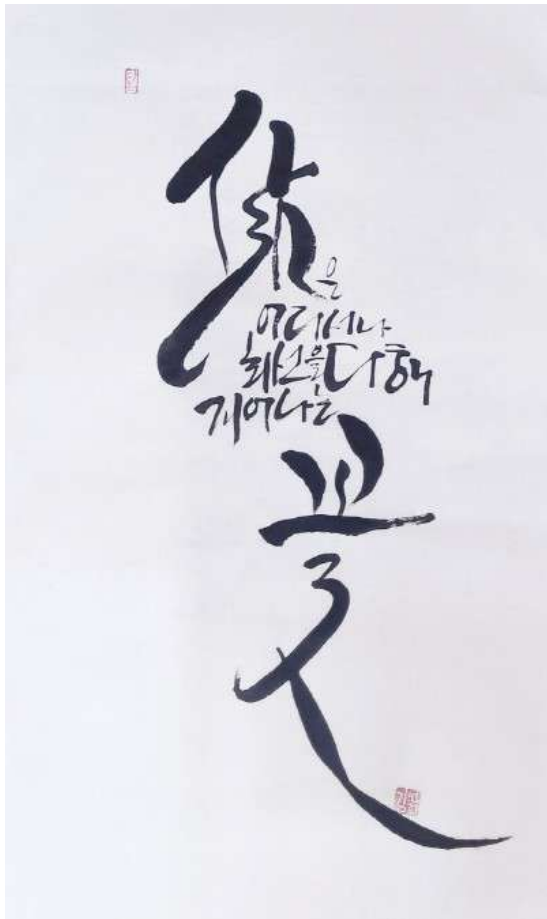 삶은
어디서나
최선을 다해
피어나는
꽃